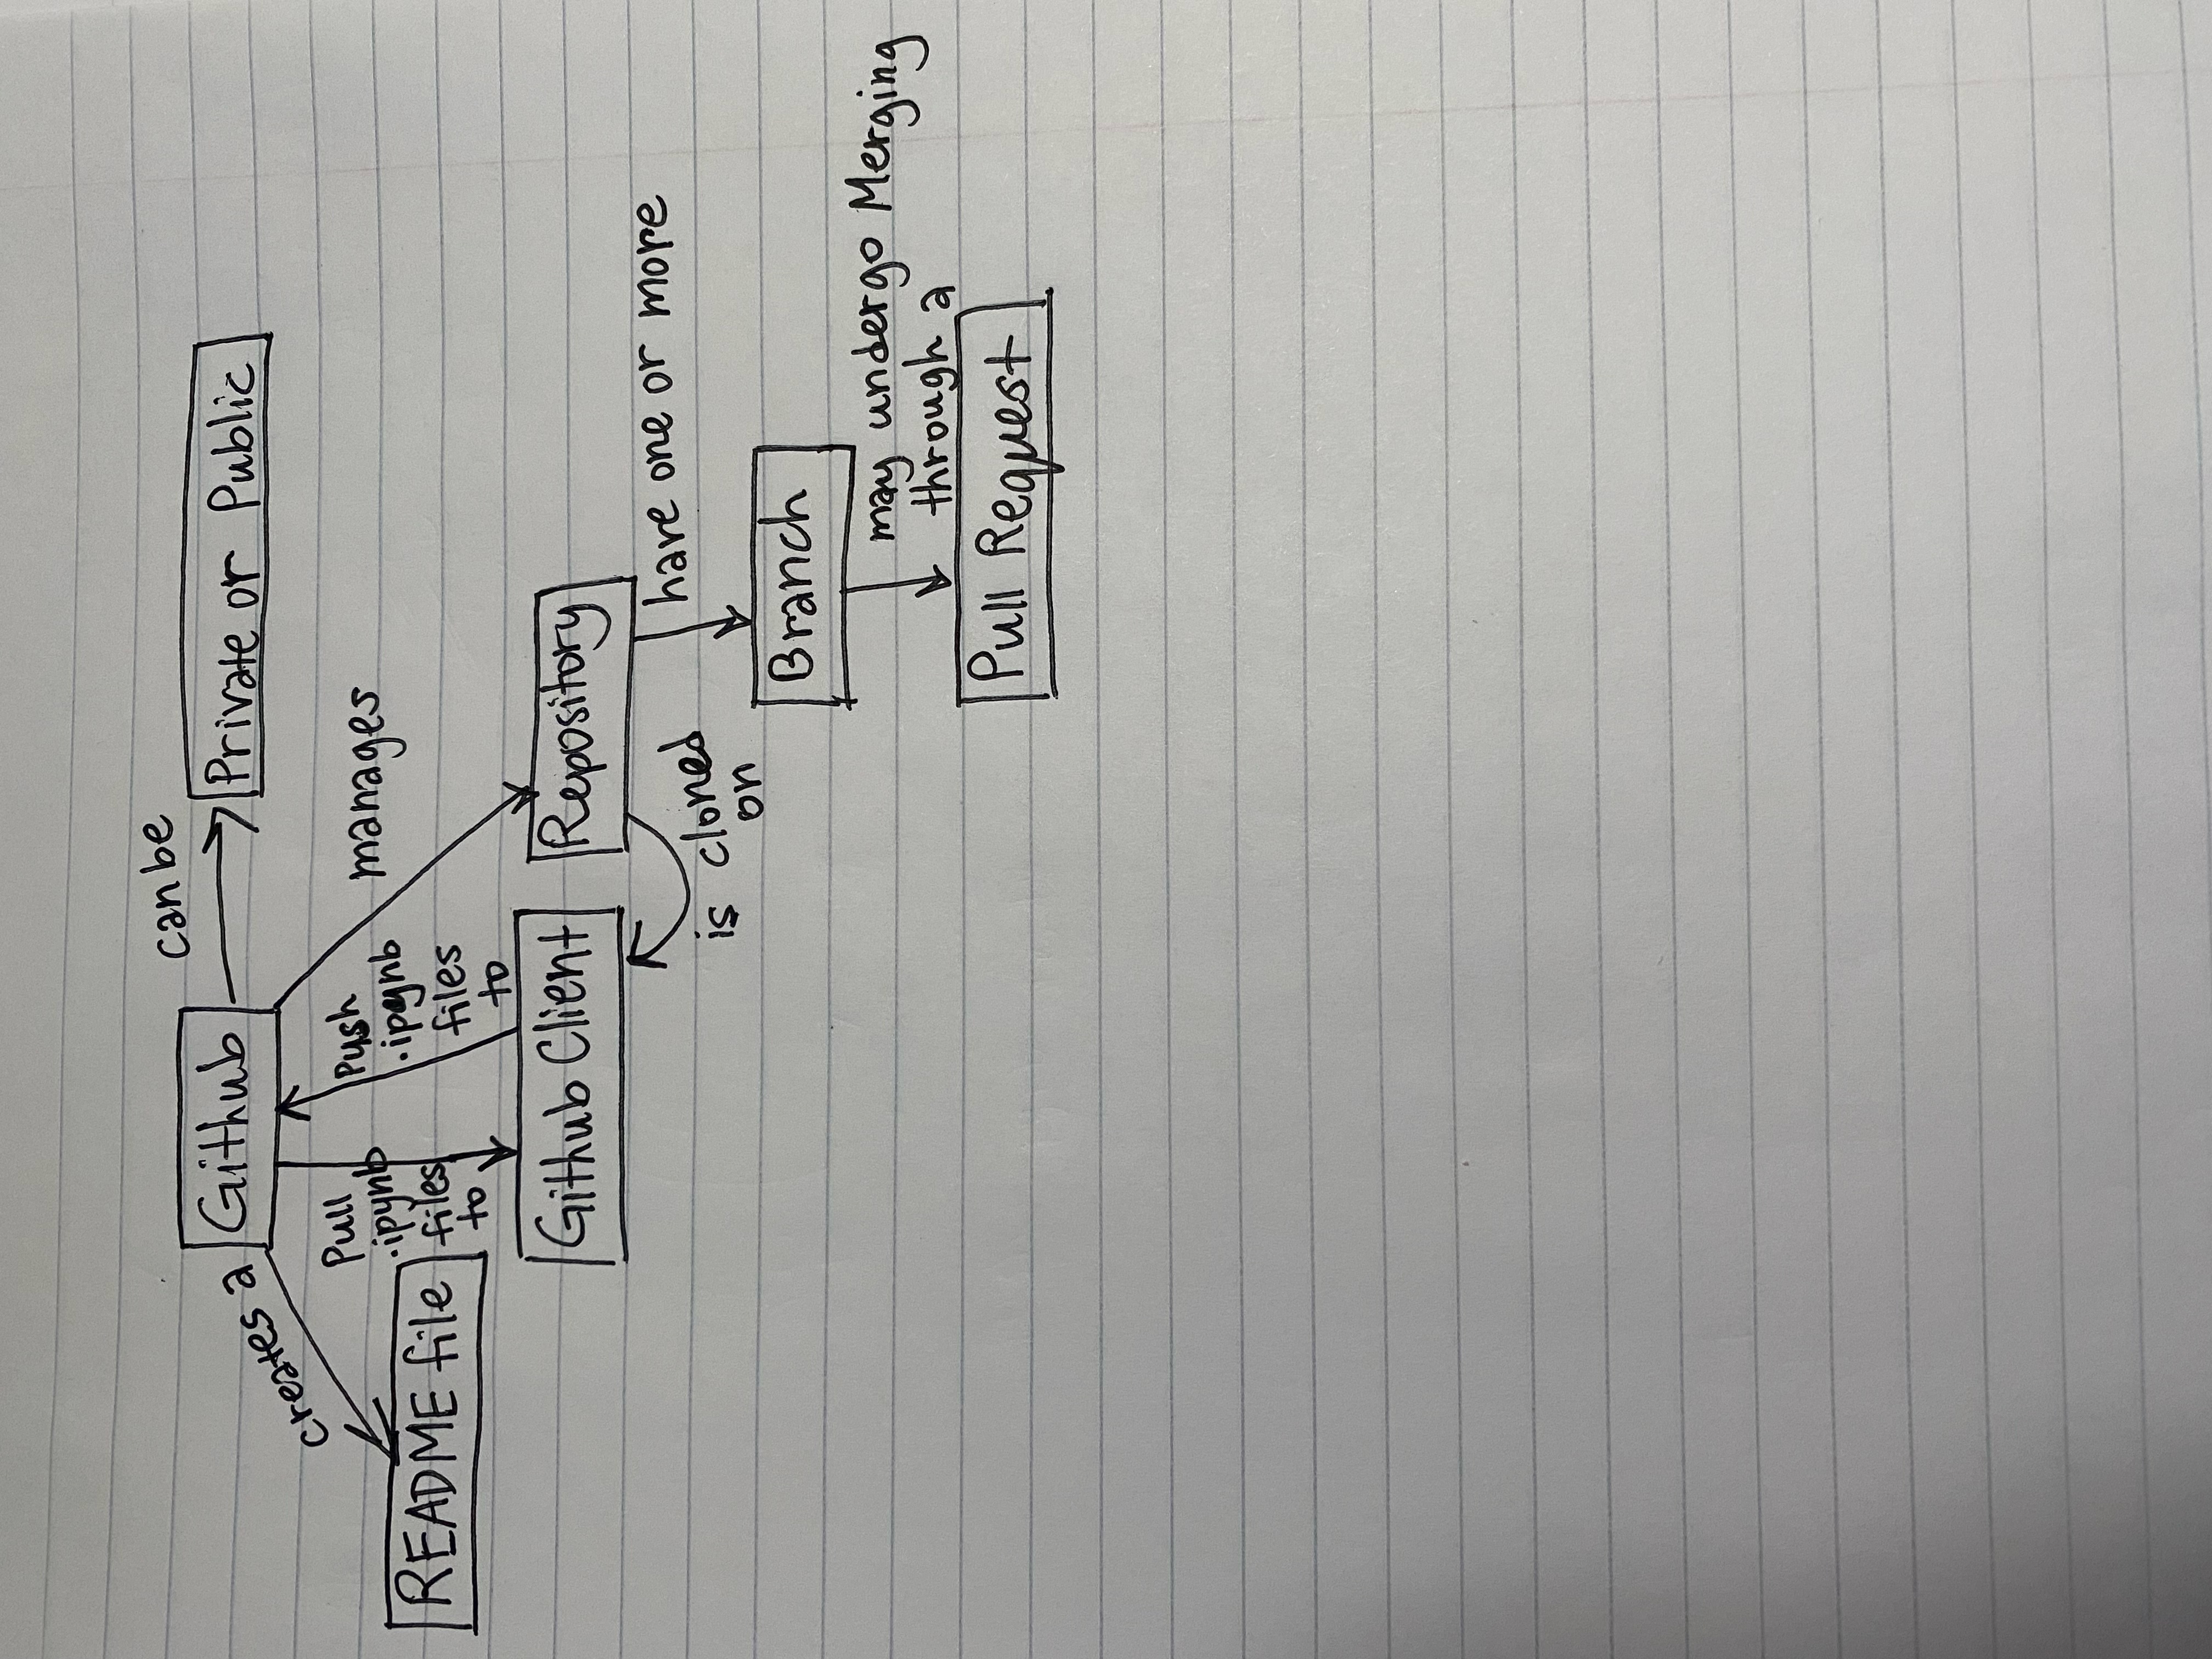 can be
Github
Private or Public
creates a
Pull
.ipynb
files
to
Push
.ipynb
files
to
manages
README file
Github Client
Repository
is cloned
on
have one or more
Branch
may undergo Merging
through a
Pull Request